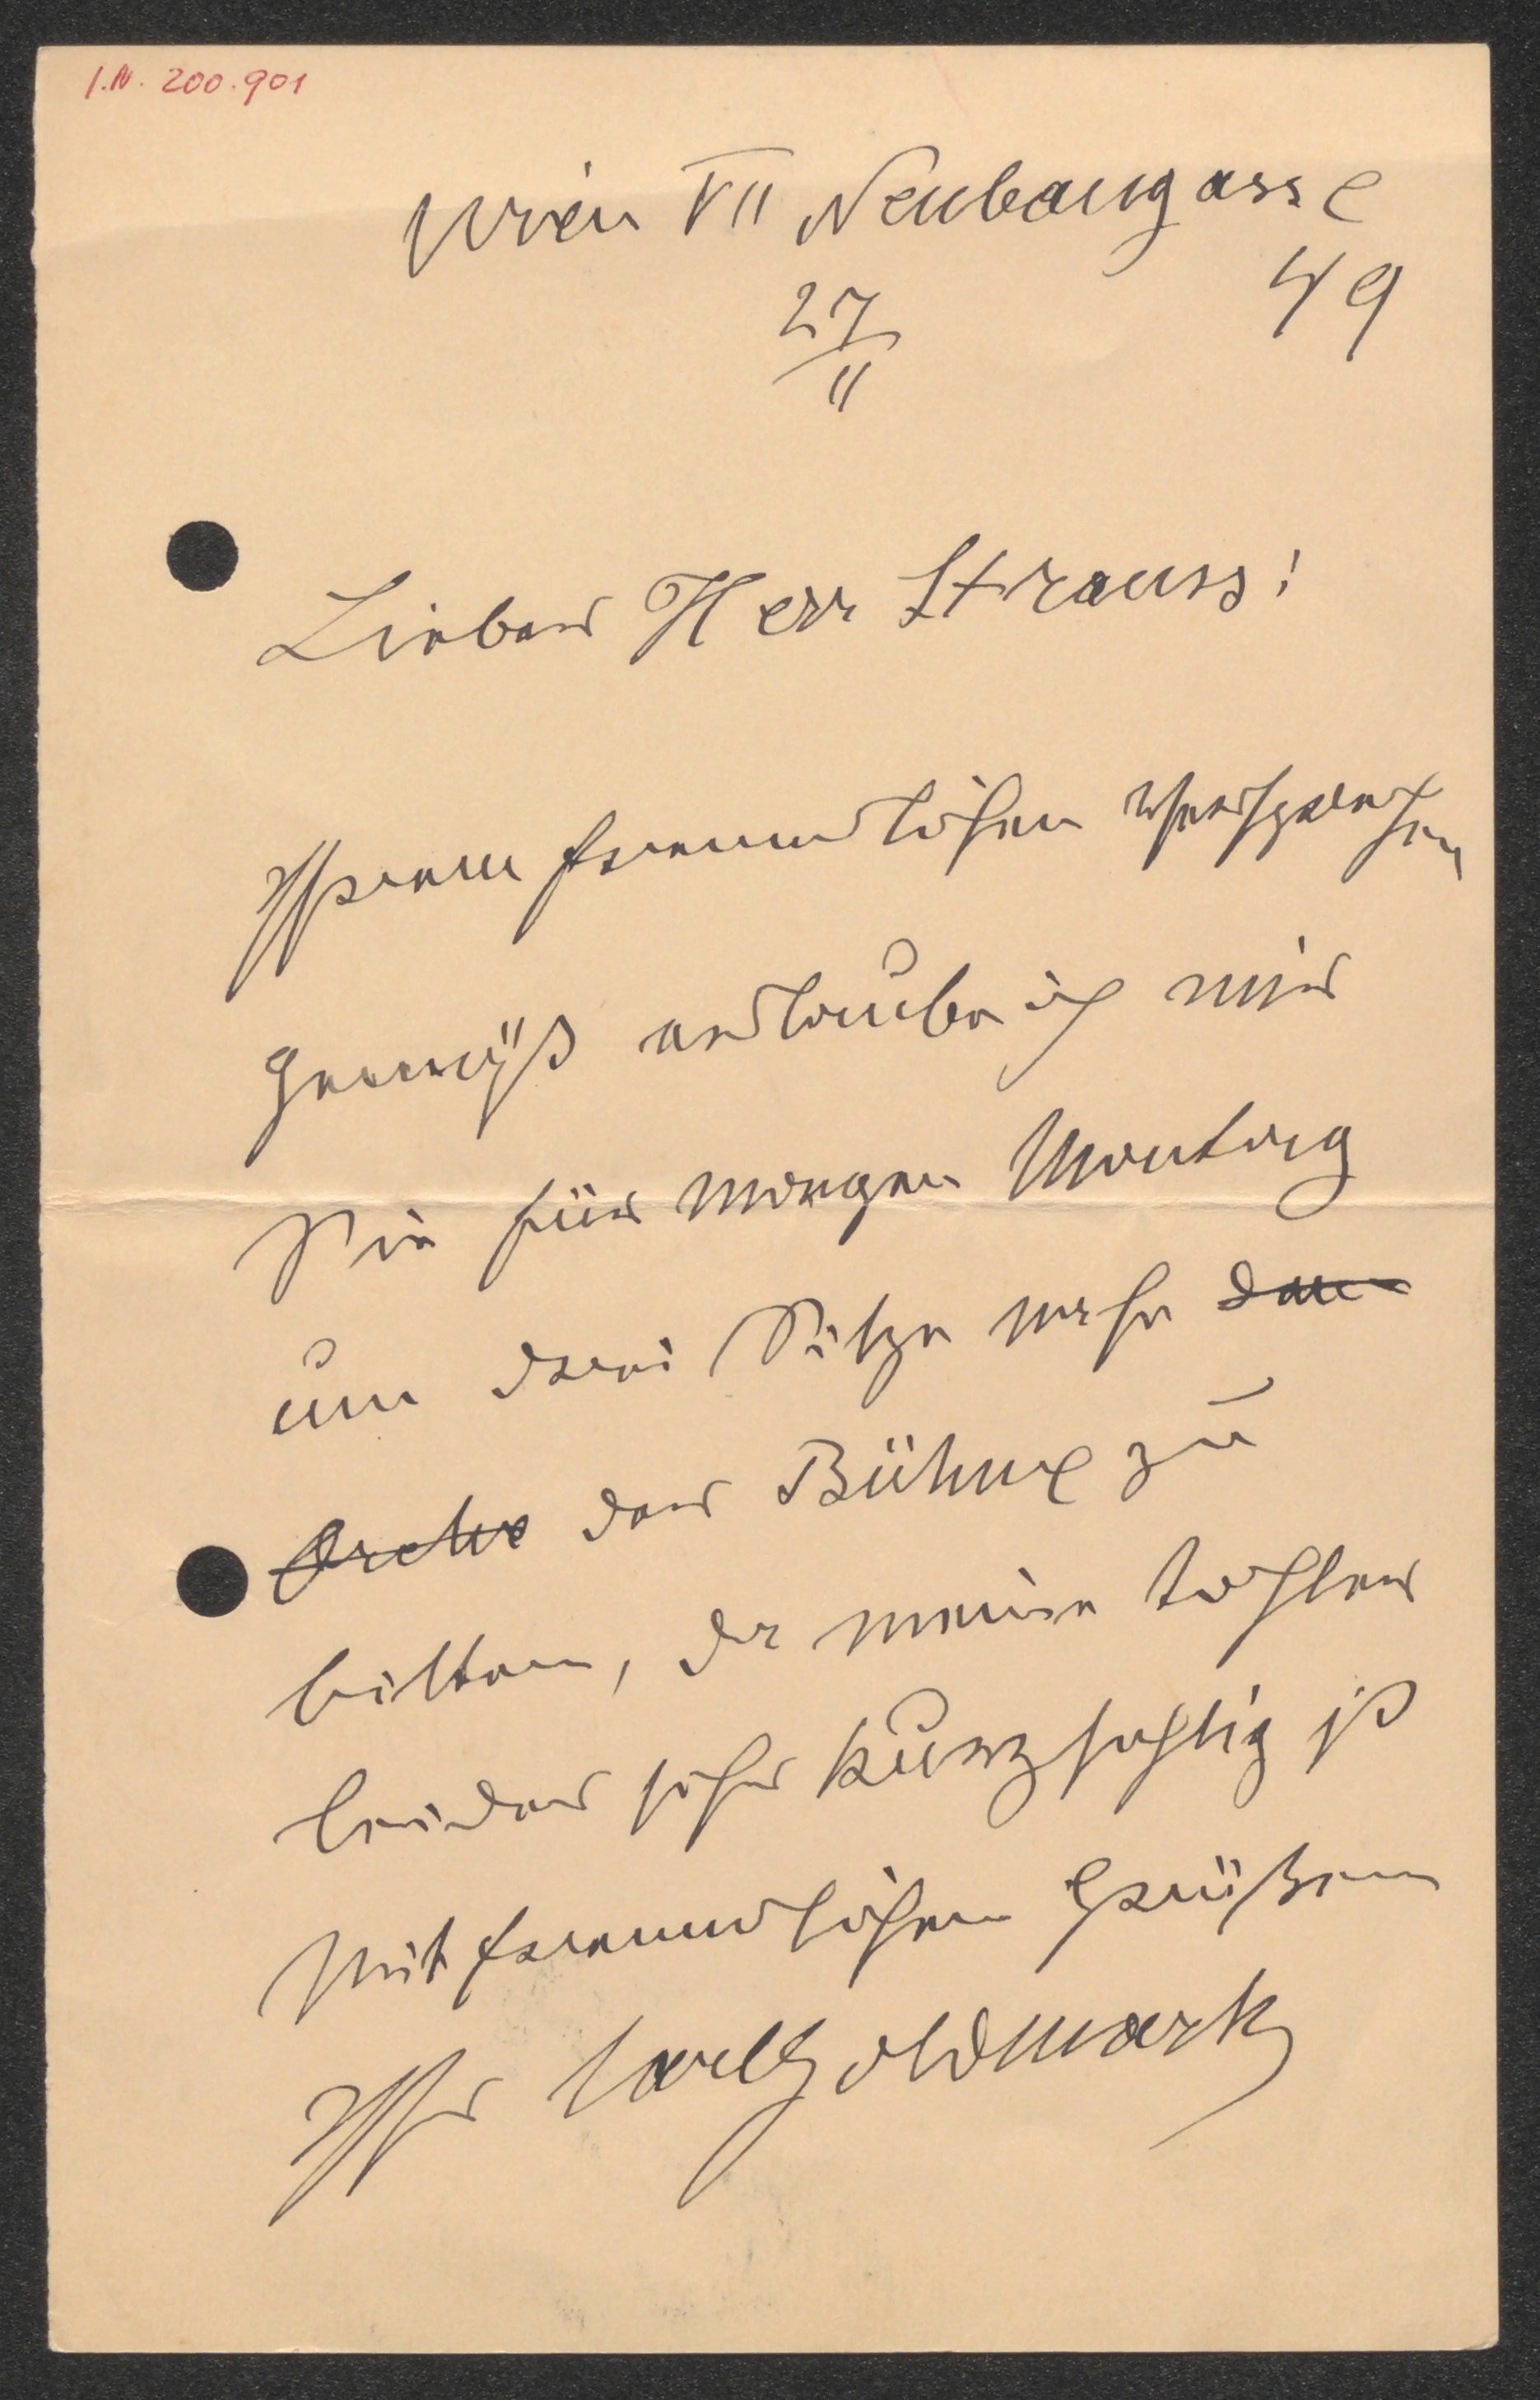 I.N. 200.901
Wien VII Neubaugasse
49
27/11
Lieber Herr Strauss!
Ihrem freundlichen Versprechen
gemäß erlaube ich mir
Sie für morgen Montag
um drei Sitze nahe
Orche der Bühne zu
bitten, da meine Tochter
leider sehr kurzsichtig ist
Mit freundlichen Grüßen
Ihr Carl Goldmark